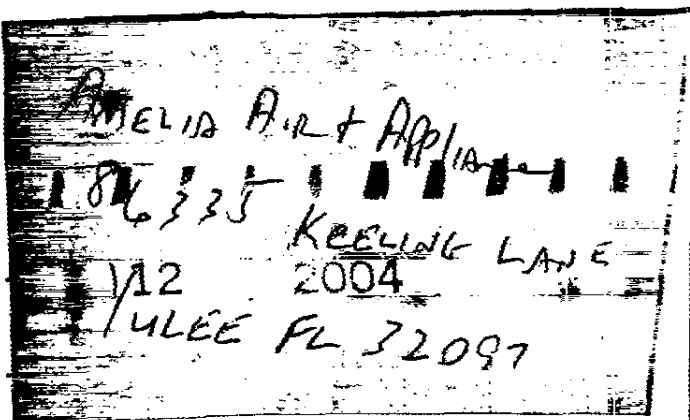 Amelia Air + Appliance
86335 Keeling Lane
112 2004
Yulee FL 32097